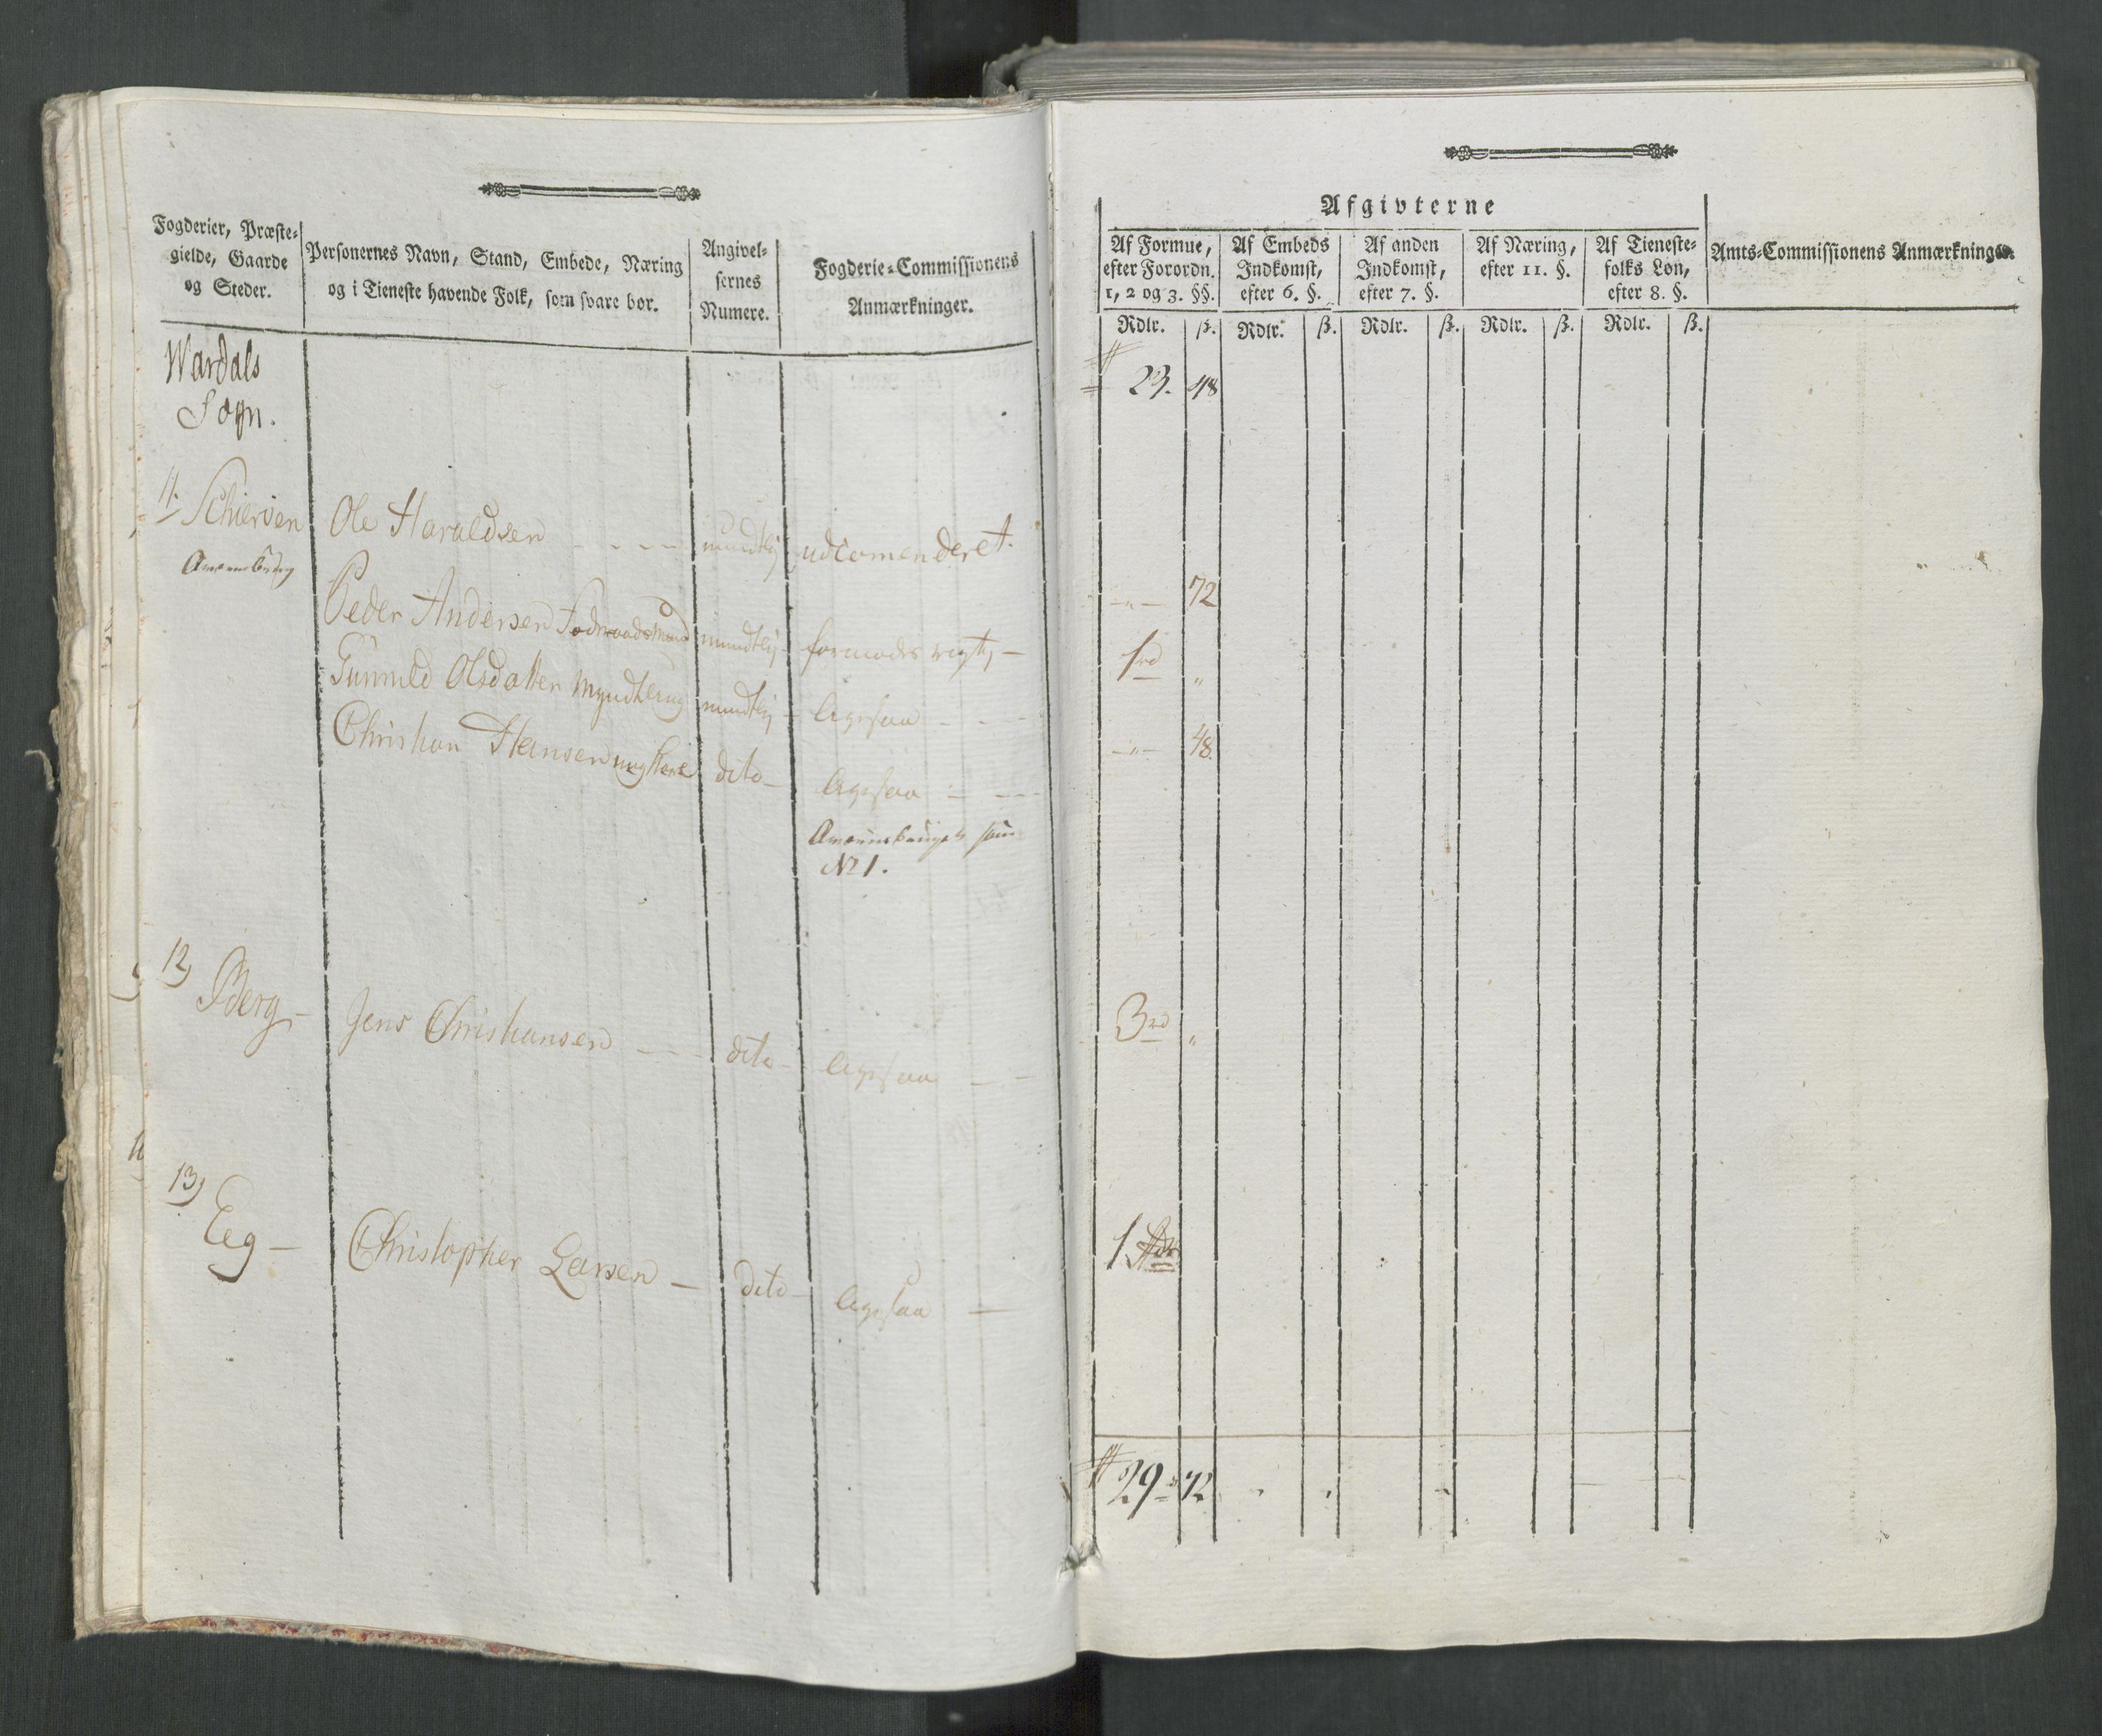 Fogderier, Præste-
gielde, Gaarde
og Steder.
Personernes Navn, Stand, Embede, Næring
og i Tieneste havende Folk, som svare bør.
Angivel-
sernes
Numere.
Fogderie-Commissionens
Anmærkninger.
Wardals
Sogn.
11. Schierven Ole Haraldsen - - - - mundtlig udcomenderet.
Peder Andersen Foderaadsmand mundtlig formodes rigtig -
Gunnild Olsdatter mundtlig - ligesaa - - -
Christian Hansen dito - ligesaa - - - -
No 1.
12) Berg - Jens Christiansen - - - dito - ligesaa - -
13) Eeg - Christopher Larsen - dito - ligesaa -
Afgivterne
Af Formue,
efter Forordn.
1, 2 og 3. §§.
Af Embeds
Indkomst,
efter 6. §.
Af anden
Indkomst,
efter 7. §.
Af Næring,
efter 11. §.
Af Tieneste-
folks Løn,
efter 8. §.
Amts-Commissionens Anmærkninger.
Rdlr. ß. Rdlr. ß. Rdlr. ß. Rdlr. ß. Rdlr. ß.
23. 48
- " - 72
1 rd "
- " - 48.
3 rd "
1
29 72